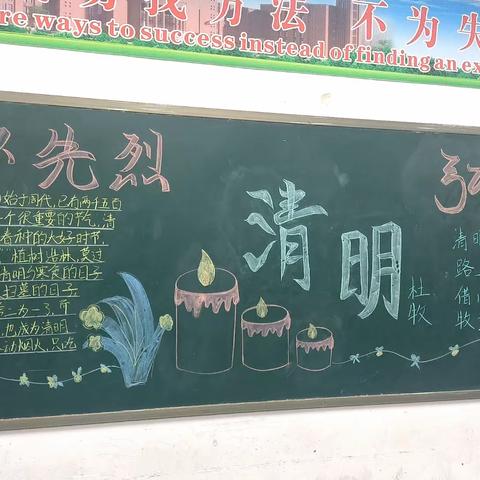 找方法 不为失
re ways to success instead of finding an ex
先烈
清明
始于周代,已有两千五百
一个很重要的节气,清
春种的大好时节,
植树造林,莫过
清明与寒食的日子
扫墓的日子
合二为一了,而
也成为清明
动烟火,只吃
杜牧
清明
路
借
牧